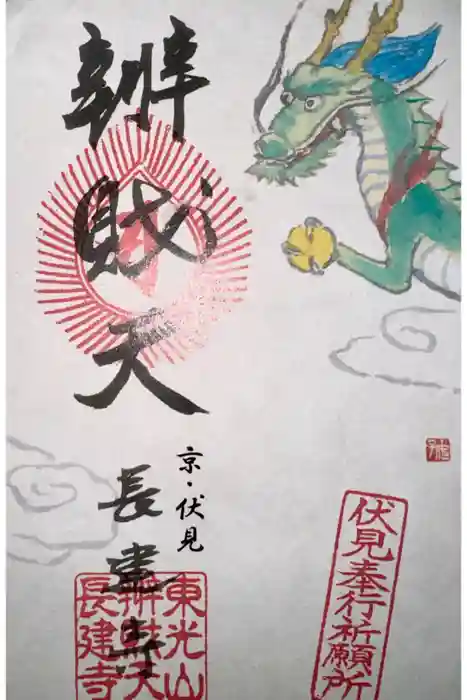 伏見奉行祈願所
辨財天
京・伏見
長建寺
東光山
辨財天
長建寺